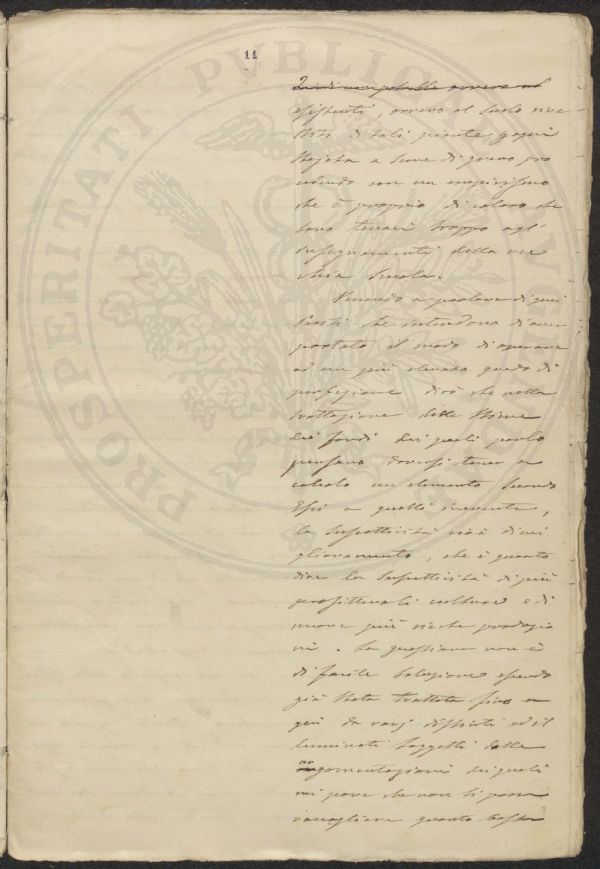 11
PROSPERITATI PVBLICAE AVGENDAE
esistenti, ovvero al suolo rive
stito di tali piante
a di grano pro
cedendo con un empirismo
che è proprio di coloro che
sono tenaci troppo agl'
insegnamenti della vec
chia Scuola.
Venendo a parlare di
che intendono di aver
portato il modo di operare
ad un più elevato grado di
perfezione dirò che nella
trattazione delle Stime
dei fondi dei quali parlo
pensano doversi tener a
calcolo un elemento secondo
Essi a quelli inerente,
la suscettività cioè di mi
glioramento, che è quanto
dire la suscettività di più
profittevoli culture e di
nuove più ricche produzio
ni. La questione non è
di facile soluzione essendo
già stata trattata fino a
qui da varj distinti ed il
luminati Soggetti dalle
argomentazioni dei quali
mi pare che non si possa
raccogliere quanto basta